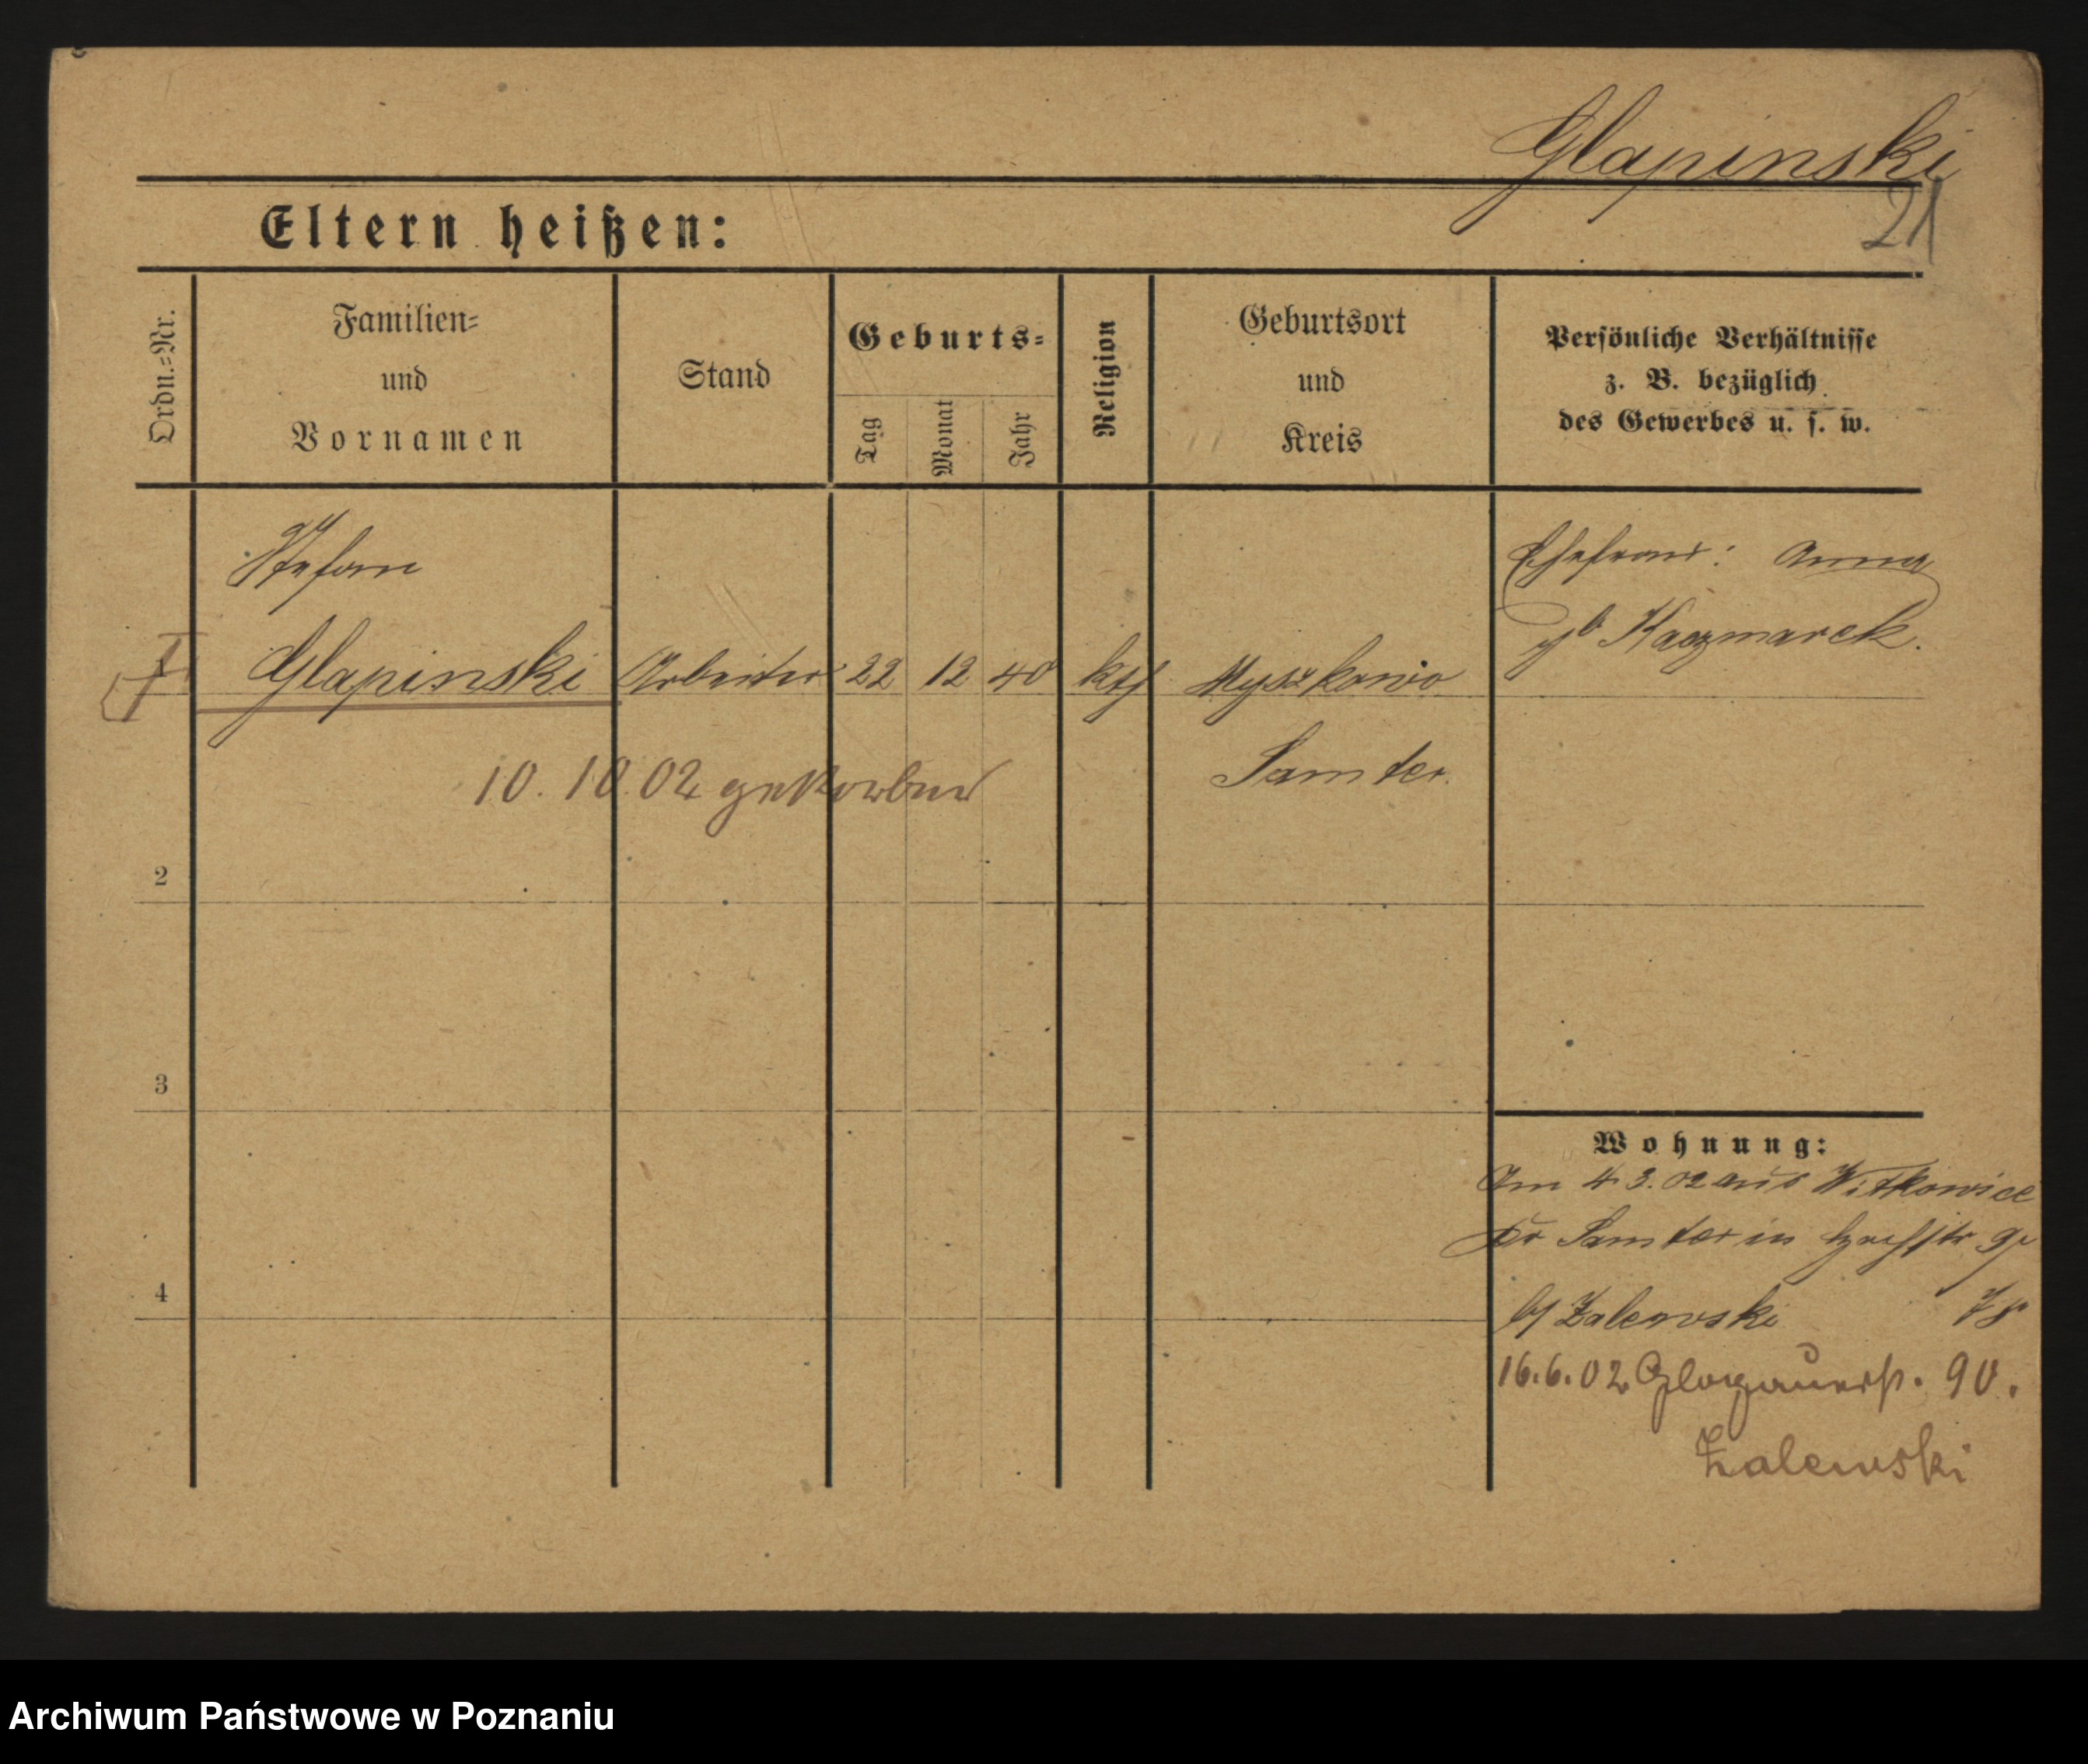 Glapinski
21
Eltern heißen:
Ordn.=Nr.
Familien=
und
Vornamen
Stand
Geburts=
Tag
Monat
Jahr
Religion
Geburtsort
und
Kreis
Persönliche Verhältnisse
z. B. bezüglich
des Gewerbes u. s. w.
Stefan
Ehefrau: Anna
gb Kaczmarek.
Glapinski Arbeiter 22 12 40 kth Myszkowo
Samter.
10. 10. 02 gestorben
2
3
4
Wohnung:
Am 4 3. 02 aus Witkowice
Kr Samter in
b/ Zalewski
16.6.02 Glogauerstr. 90.
Zalewski
Archiwum Państwowe w Poznaniu